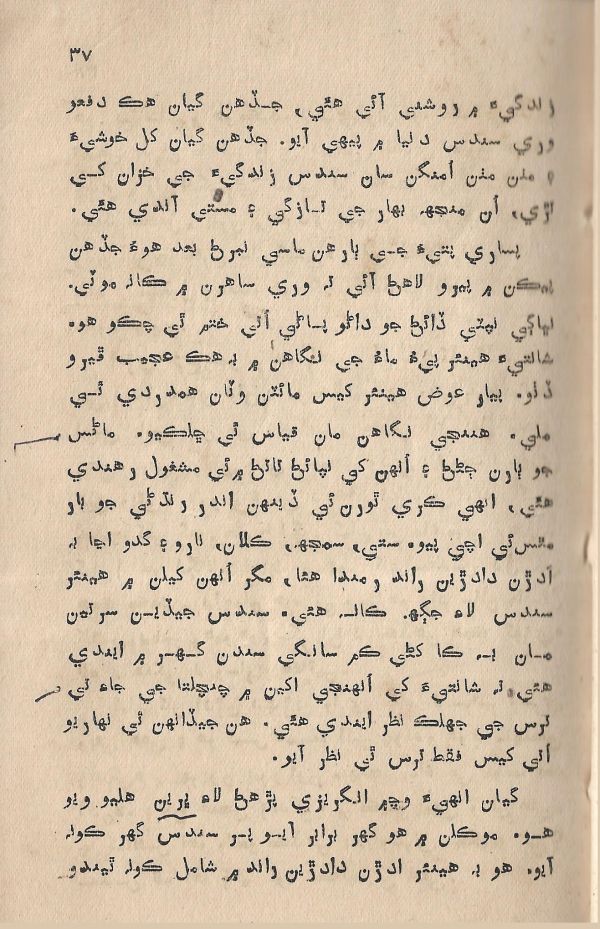 ۳۷
زندگيءَ ۾ روشني آئي هئي، جڏهن گيان هڪ دفعو
وري سندس دنيا ۾ پيهي آيو. جڏهن گيان کل خوشيءَ
۽ منن منن اُمنگن سان سندس زندگيءَ جي خزان کي
اڙي، اُن منجهہ بهار جي تازگي ۽ مستي آندي هئي.
پساري پتيءَ جي ٻارهن ماسي نبرڻ بعد هوءَ جڏهن
پيڪن ۾ پيرو لاهڻ آئي تہ وري ساهرن ۾ ڪانہ موٽي.
نياڳي نهٽي ڏائڻ جو دائو پساڻي اُتي ختم ٿي چڪو هو.
شانتيءَ هينئر پيءُ ماءُ جي نگاهن ۾ بہ هڪ عجيب ڦيرو
ڏٺو. پيار عوض هينئر کيس مائٽن وٽان همدردي ٿي
ملي. هنجي نگاهن مان قياس ٿي ڇلڪيو. ماڻس
جو ٻارن ڄڻڻ ۽ اُنهن کي نپائڻ تائڻ ۾ ئي مشغول رهندي
هئي، انهي ڪري ٿورن ئي ڏينهن اندر رنڌڻي جو بار
مٿس ئي اچي پيو. ستي، سمجهہ، ڪلان، نارو ۽ گدو اڃا بہ
اَدڙن دادڙين راند رمندا هئا، مگر اُنهن کيلن ۾ هينئر
سندس لاءِ جڳهہ ڪانہ هئي. سندس جيڏين سرتين
مان بہ ڪا کڻي ڪم سانگي سندن گهر ۾ ايندي
هئي تہ شانتيءَ کي اُنهنجي اکين ۾ چنچلتا جي جاءِ تي
ترس جي جهلڪ نظر ايندي هئي. هن جيڏانهن ٿي نهاريو
اُتي کيس فقط ترس ٿي نظر آيو.
گيان انهيءَ وچ ۾ انگريزي پڙهڻ لاءِ پرين هليو ويو
هو. موڪلن ۾ هو گهر برابر آيو پر سندس گهر ڪونہ
آيو. هو بہ هينئر ادڙن دادڙين راند ۾ شامل ڪونہ ٿيندو